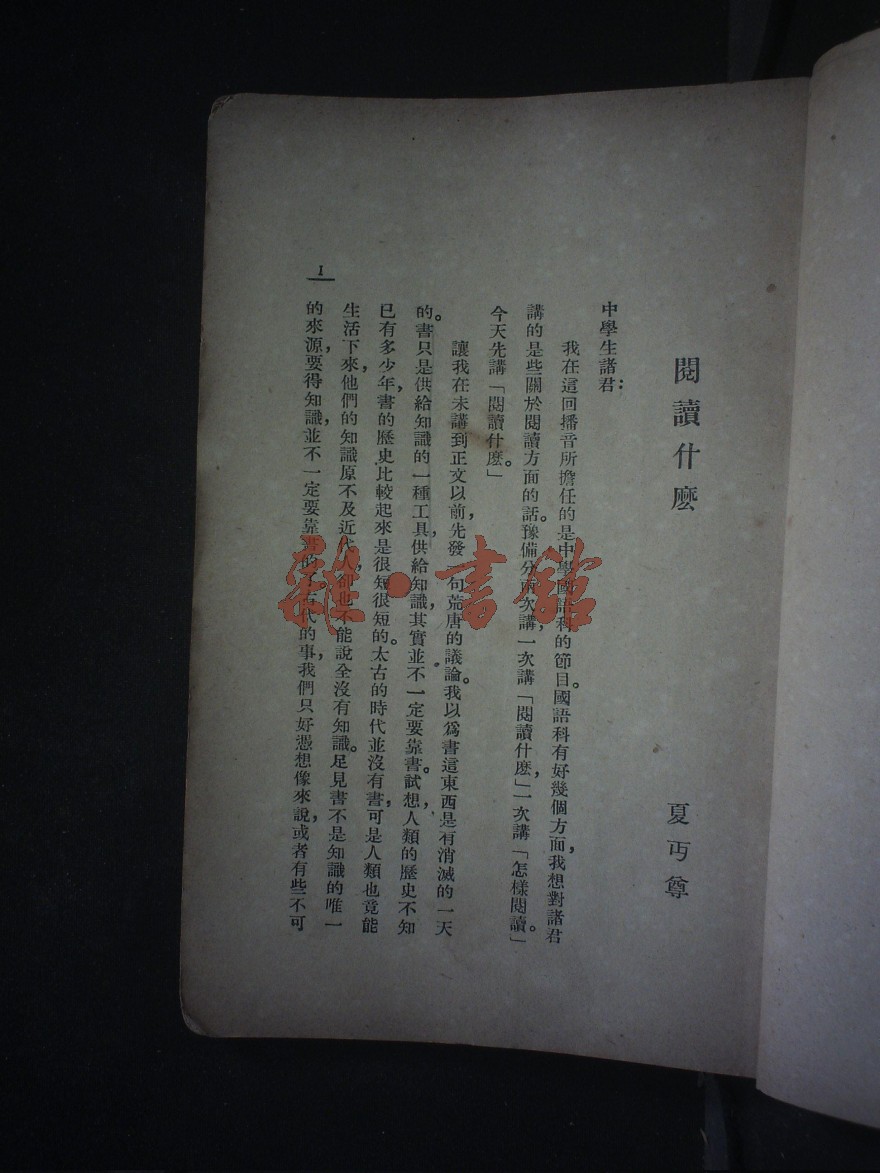 閱讀什麼
夏丏尊
中學生諸君：
我在這回播音所擔任的是中學國語科的節目。國語科有好幾個方面，我想對諸君
講的是些關於閱讀方面的話。豫備分兩次講，一次講「閱讀什麼，」一次講「怎樣閱讀」。
今天先講「閱讀什麼。」
讓我在未講到正文以前，先發一句荒唐的議論。我以爲書這東西是有消滅的一天
的。書只是供給知識的一種工具，供給知識，其實並不一定要靠書。試想，人類的歷史不知
已有多少年，書的歷史比較起來是很短很短的。太古的時代並沒有書，可是人類也竟能
生活下來，他們的知識原不及近代人，卻也不能說全沒有知識。足見書不是知識的唯一
的來源，要得知識，並不一定要靠書的了。古代的事，我們只好憑想像來說，或者有些不可
1
雜·書館